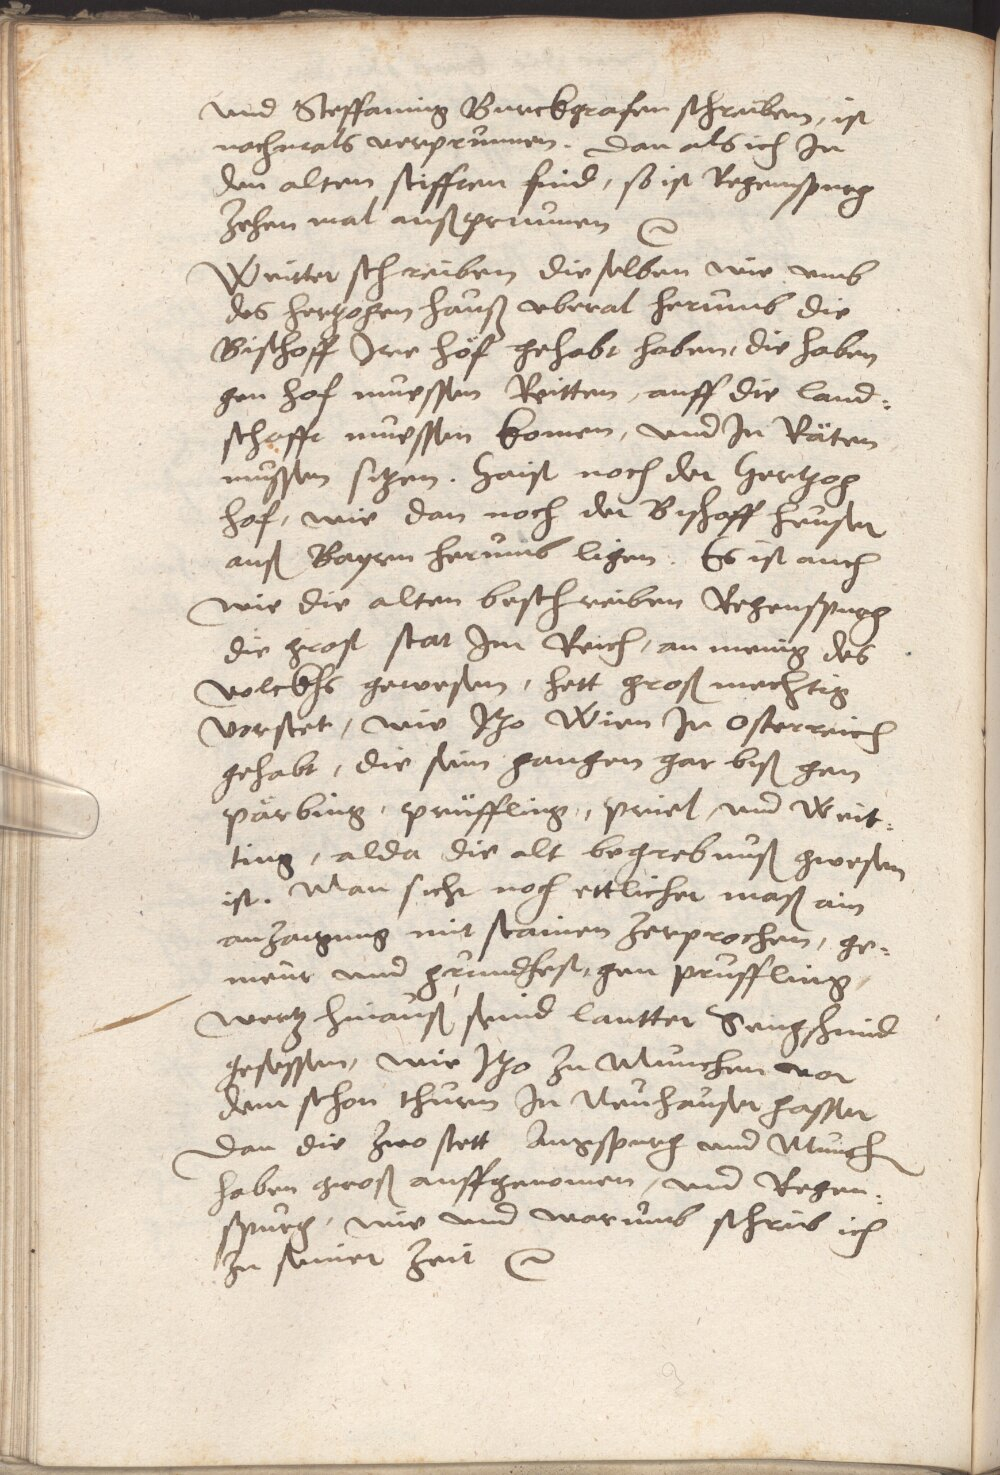 und Steffaning Burckgrafen schreiben, ist
nachmals verprunnen. Dan als ich In
den alten stifften find, so ist Regenspurg
Zehen mal außprunnen
Weitter schreiben dieselben wie umb
des hertzogen hauß uberal herumb die
Bischoff Ire höf gehabt haben, die haben
gen hof muessen Reitten, auff die land-
schafft muessen komen, und In Räten
muessen sitzen. Haist noch der Hertzog
hof, wie dan noch der Bischoff heuser
auß Bayrn herumb ligen. Es ist auch
wie die alten beschreiben Regenspurg
die grost stat Im Reich, an menig des
volckhs gewesen, hett groß mechtig
vorstet, wie Itzo Wien In Osterreich
gehabt, die sein gangen gar biß gen
pärbing, prüffling, priel, und Weit-
ting, alda die alt begrebnuß gwesen
ist. Man sicht noch ettlicher maß ain
anzaigung mit stainen Zerprochen, ge-
meür und grundfest, gen prüffling
wertz hinauß seind lautter
gesessen, wie Itzo Zu Munchen vor
dem schon thurn In Neuhauser gasser
Dan die Zwo stett Augspurg und Münch
haben groß auffgenomen, und Regen-
spurg, wie und warumb schreib ich
Zu seiner Zeit